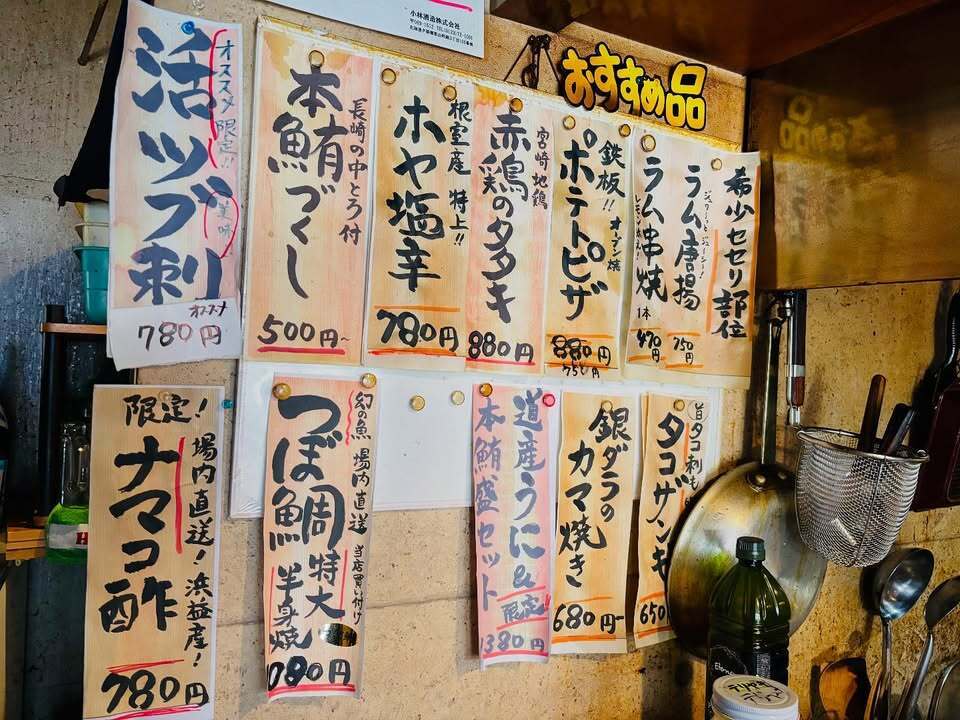 小林酒造株式会社
おすすめ品
希少セセリ部位
ラム唐揚
750円
ラム串焼
1本
470円
鉄板!!
オーブン焼
ポテトピザ
880円
750円
宮崎地鶏
赤鶏のタタキ
880円
根室産 特上!!
ホヤ塩辛
780円
長崎の中とろ付
本鮪づくし
500円~
オススメ
限定!!
美味
活ツブ刺し
オススメ
780円
旨タコ刺も
タコザンギ
650
銀ダラの
カマ焼き
680円~
道産うに&
本鮪盛セット
限定!!
1380円
幻の魚 場内直送 当店買い付け
つぼ鯛 特大
半身焼
780円
限定!
場内直送! 浜益産!
ナマコ酢
780円